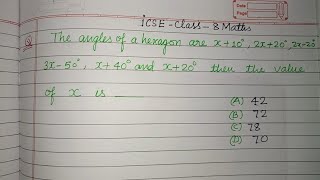 Date
Page
ICSE - Class - 8 Maths
Q The angles of a hexagon are x+10°, 2x+20°, 2x-20°
3x-50°, x+40° and x+20° then the value
of x is
(A) 42
(B) 72
(C) 78
(D) 70